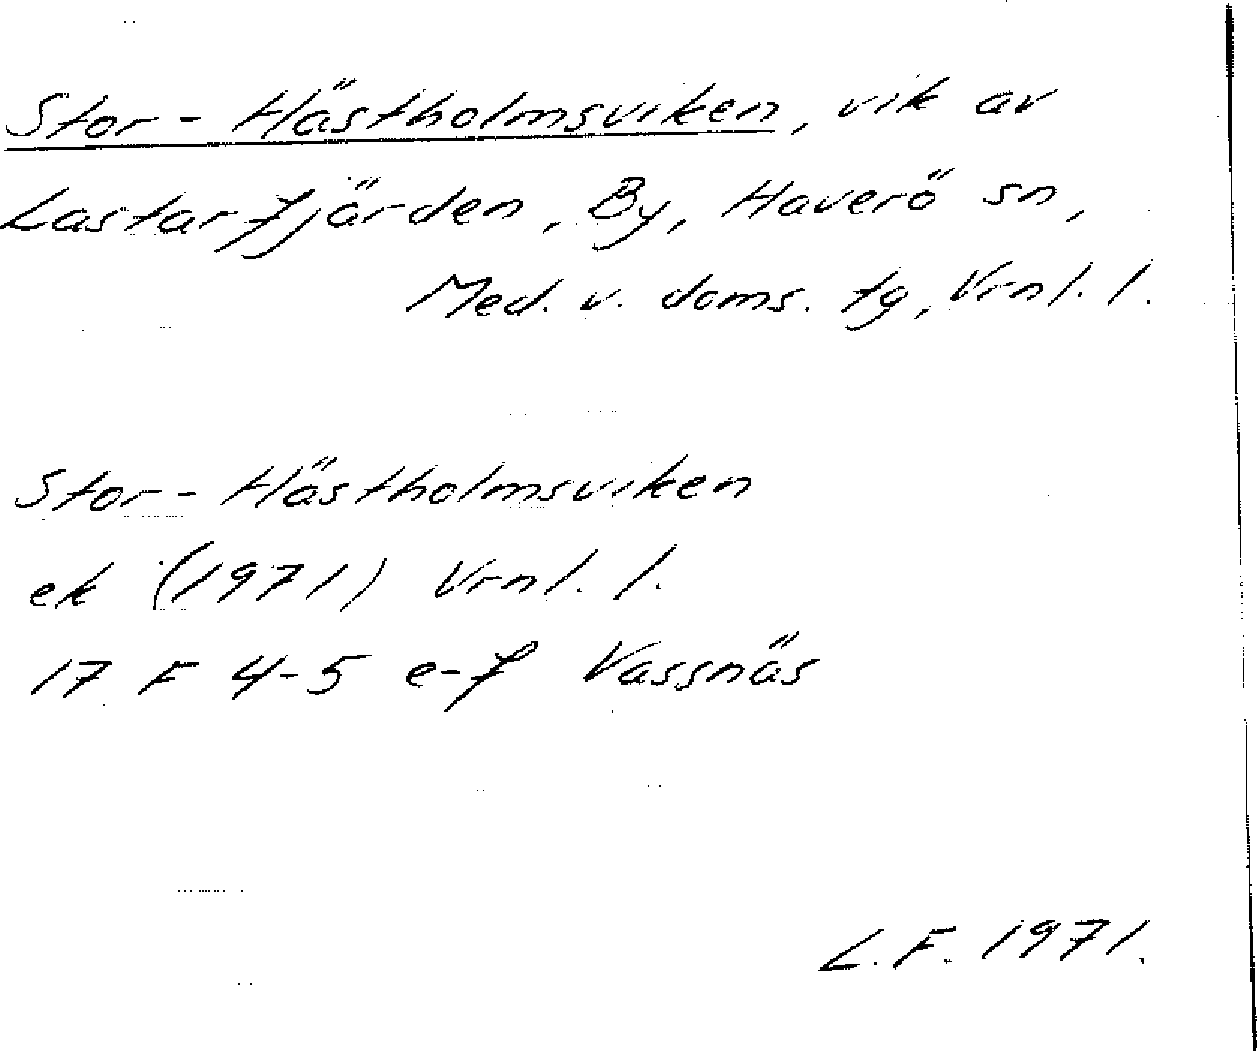 Stor-Hästholmsviken, vik av
Lastarfjärden, By, Haverö sn,
Med. v. doms. tg, Vrnl. l.
Stor-Hästholmsviken
ek (1971) Vrnl. l.
17 F 4-5 e-f Vassnäs
L.F. 1971.